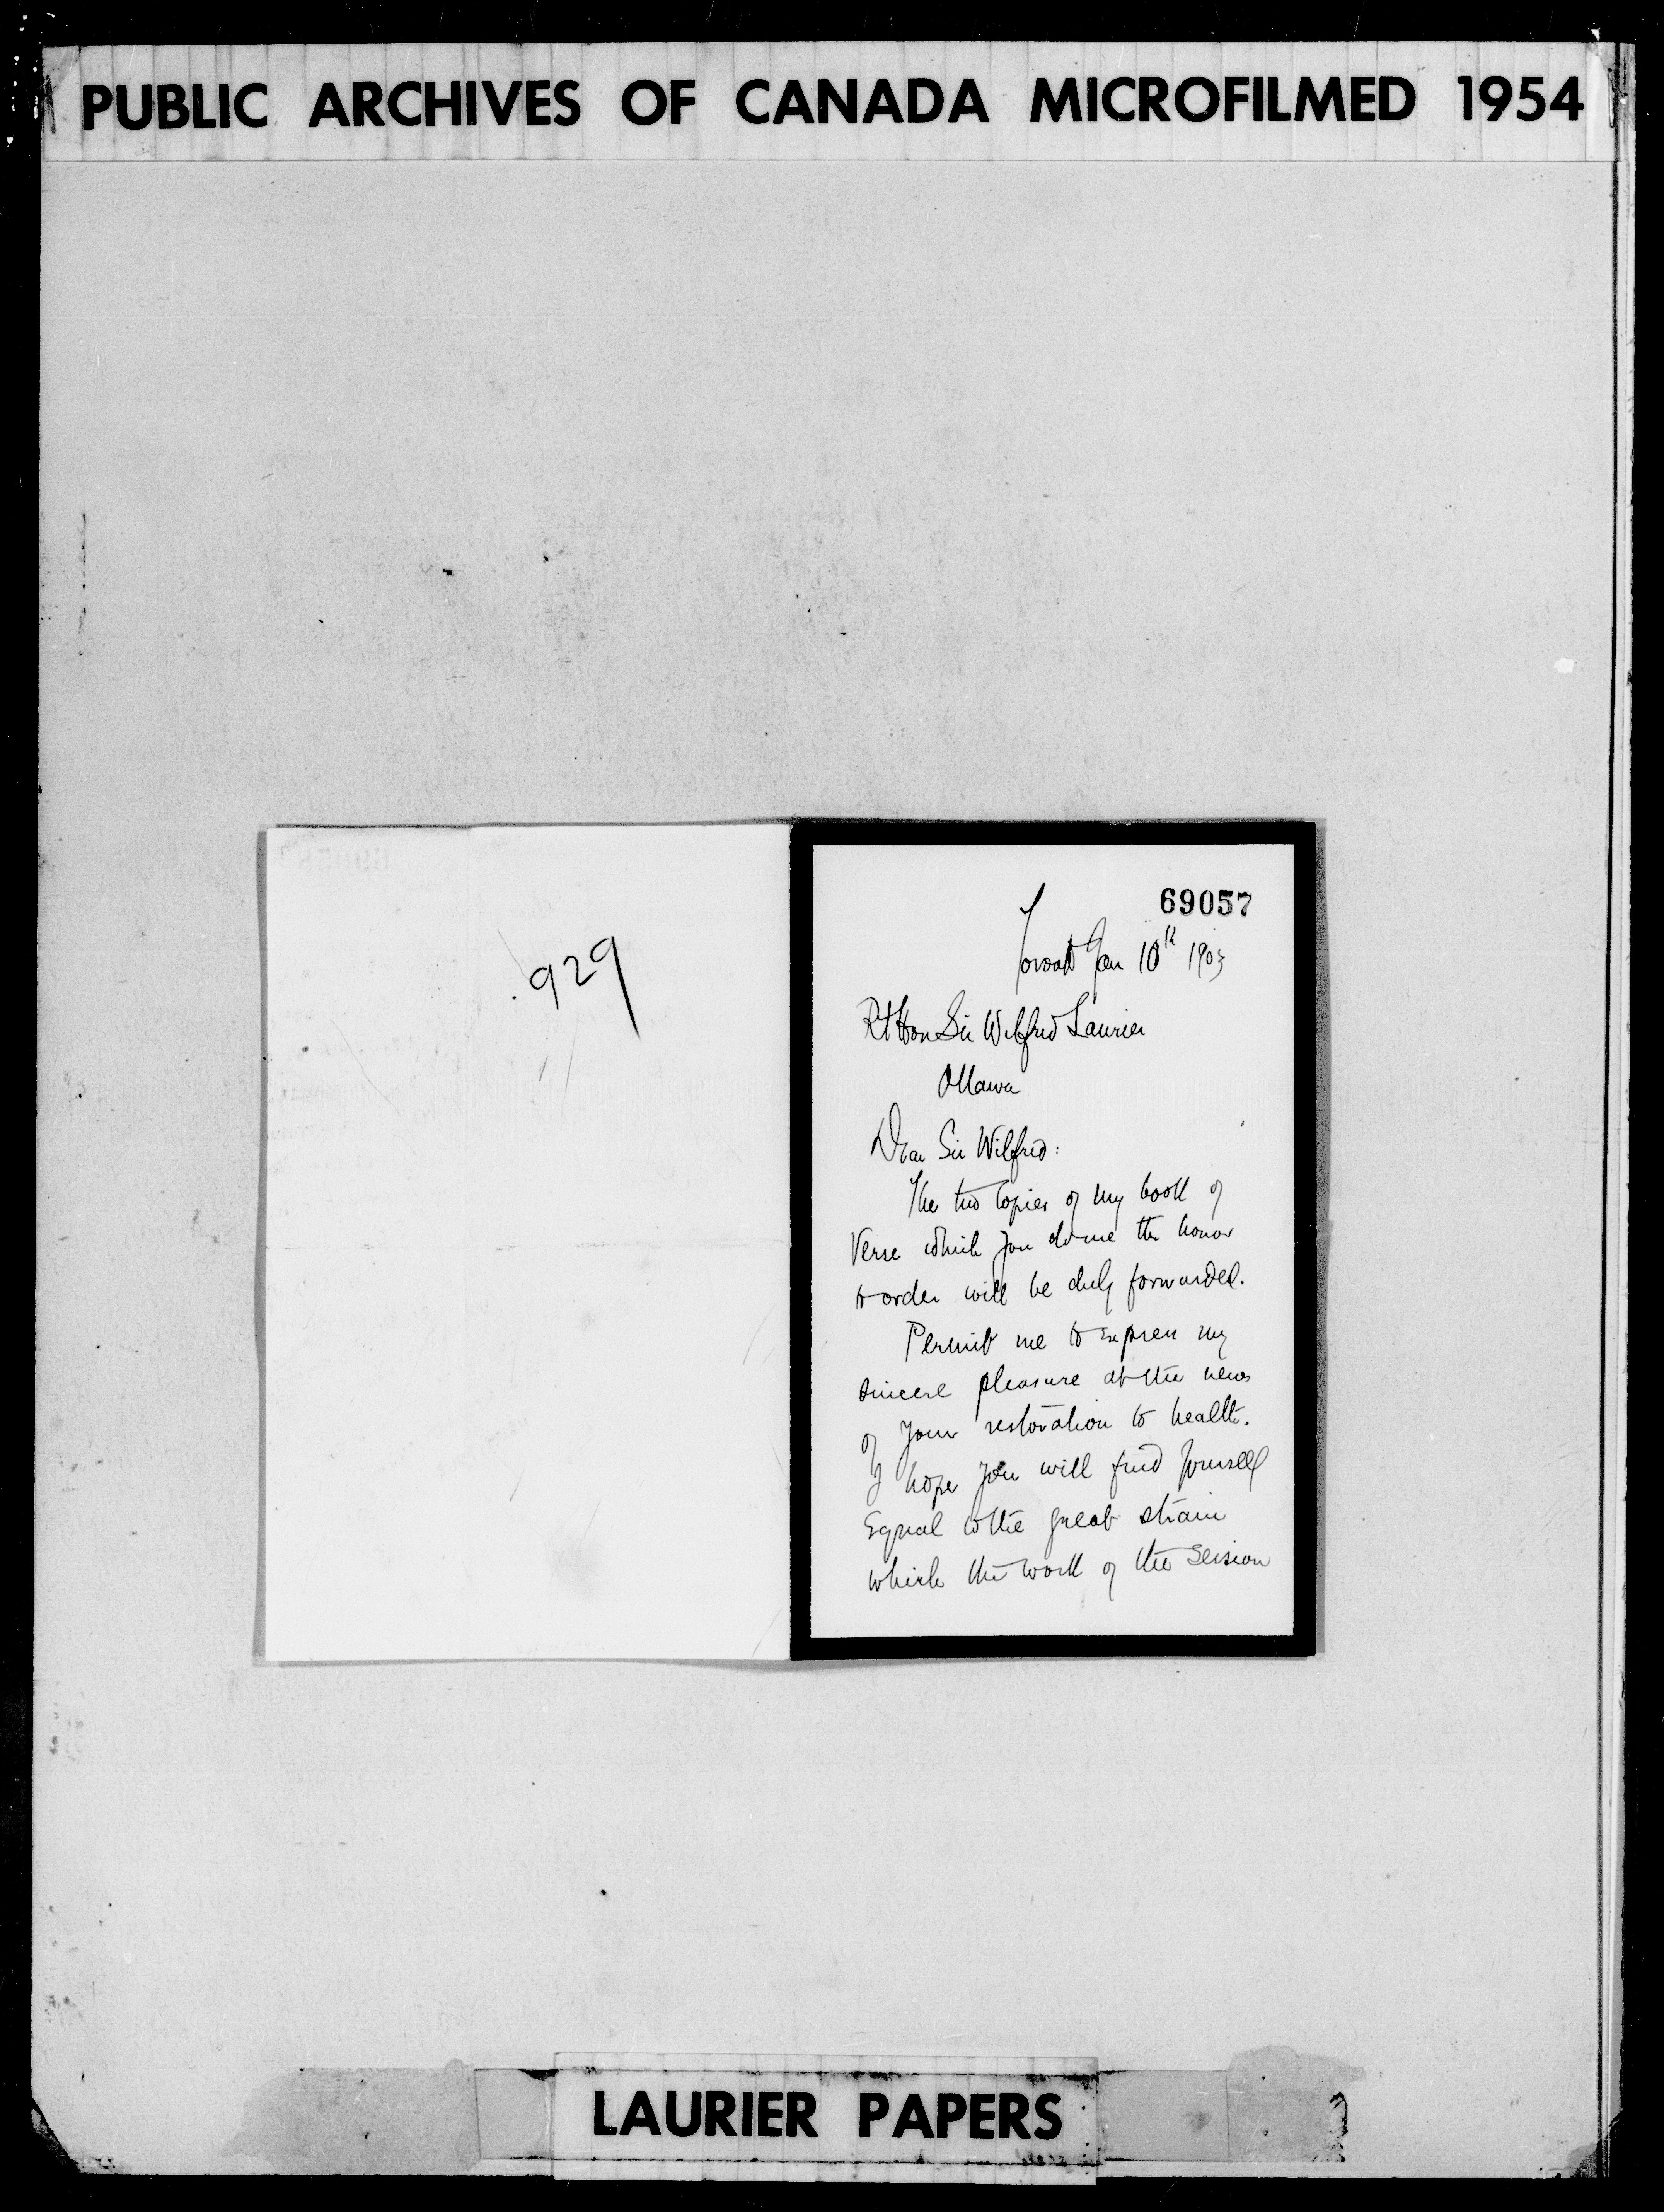 PUBLIC ARCHIVES OF CANADA MICROFILMED 1954
929
69057
Toronto Jan 10th 1903
Rt Hon Sir Wilfrid Laurier
Ottawa
Dear Sir Wilfrid:
The two copies of my book of
Verse which you do me the honor
to order will be duly forwarded.
Permit me to express my
sincere pleasure at the news
of your restoration to health.
I hope you will find yourself
Equal to the great strain
which the work of the Session
LAURIER PAPERS